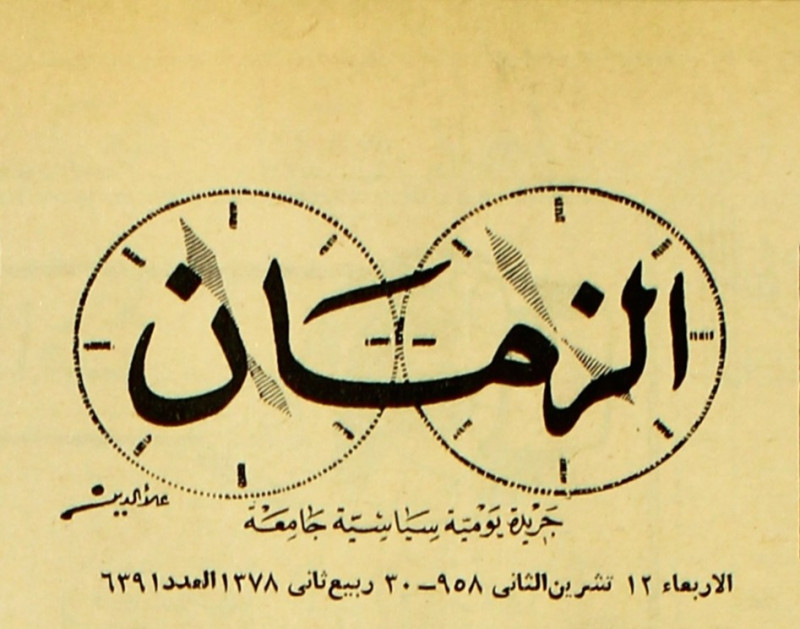 الزمان
علاء الدين
جريدة يومية سياسية جامعة
الاربعاء ١٢ تشرين الثانى ٩٥٨ - ٣٠ ربيع ثانى ١٣٧٨ العدد ٦٣٩١